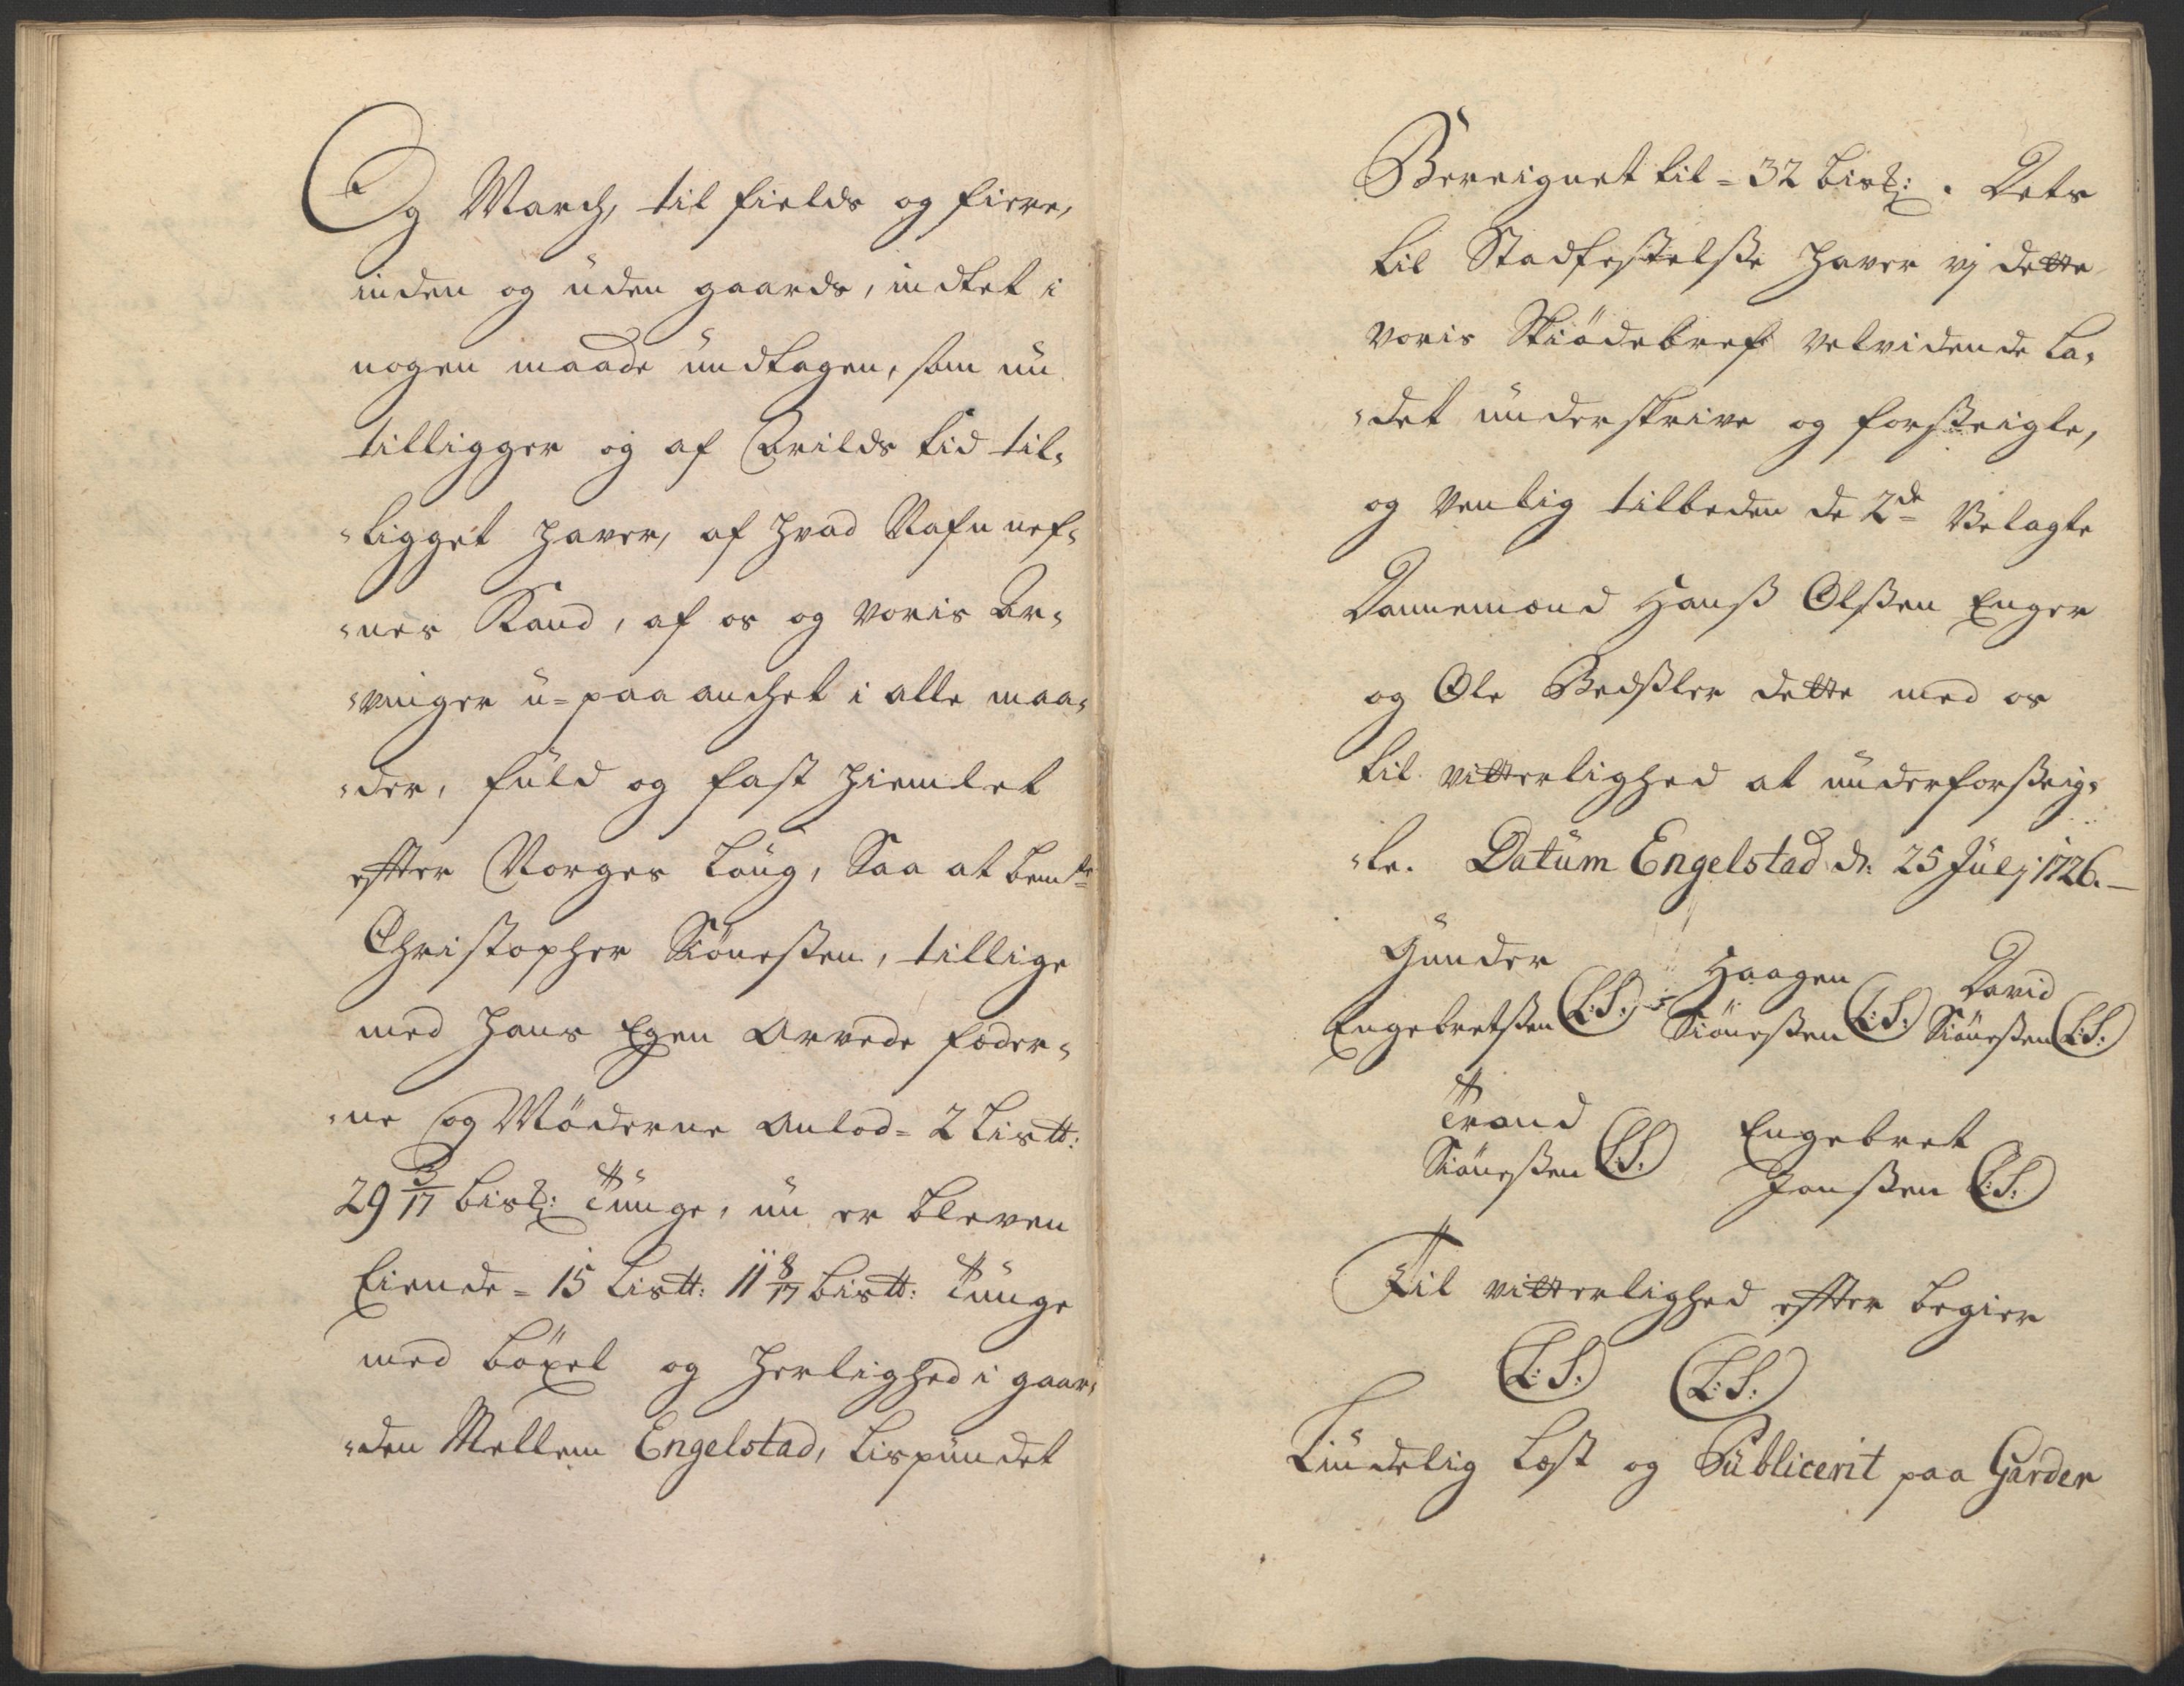 Og March, til fields og fiere,
inden og uden gaards, indtet i
nogen maade undtagen, som nu
tilligger og af Arilds tid til=
=ligget haver, af hvad Nafn nef=
=nes Kand, af os og voris Ar=
=vinger u=paaanchet i alle maa=
=der, fuld og fast hiemlet
efter Norges Laug, Saa at bemte
Christopher Siøneßen, tillige
med hans Egen Arvede fæder=
=ne og Møderne Anlod= 2 Listt:
29 3/17 bisℳ: Tunge, nu er bleven
Eiende= 15 Listt: 11 8/17 bistt: Tunge
med böxel og herlighed i gaar=
=den Mellem Engelstad, Lispundet
Bereignet til= 32 bisℳ:. Dets
til Stadfestelße haver vj dette
voris Skiödebref velvidende la=
=det underskrive og forseigle,
og venlig tilbeden de 2de Velagte
Dannemænd Hanß Olßen Enger
og Ole Bedßler dette med os
til vitterlighed at underforseig=
=le. Datum Engelstad d: 25 Julj 1726.
Gunder Engebretßen (L.S.) Haagen Siøneßen (L:S:) David Siøneßen (L:S:)
Trond Siøneßen (L:S.) Engebret Jonßen (L:S:)
Til vitterlighed efter begier
(L:S:) (L:S:)
Tiudelig Læst og Publicerit paa Garder